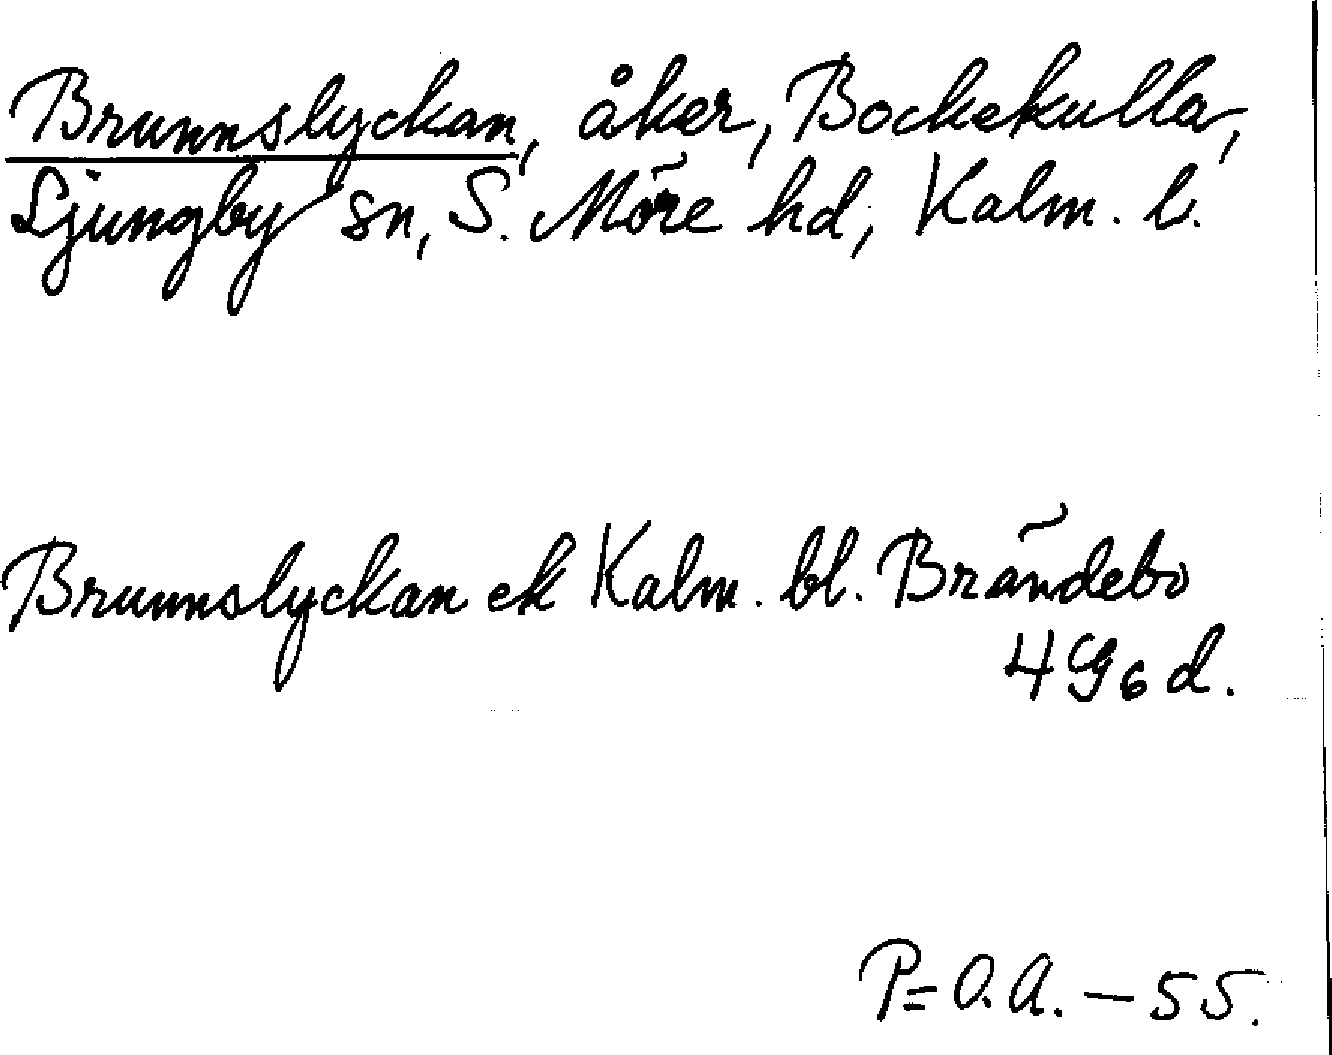 Brunnslyckan, åker, Bockekulla,
Ljungby sn, S. Möre hd, Kalm. l.
Brunnslyckan ek Kalm. bl. Brändebo
4 G 6 d.
P= O.A. – 55.